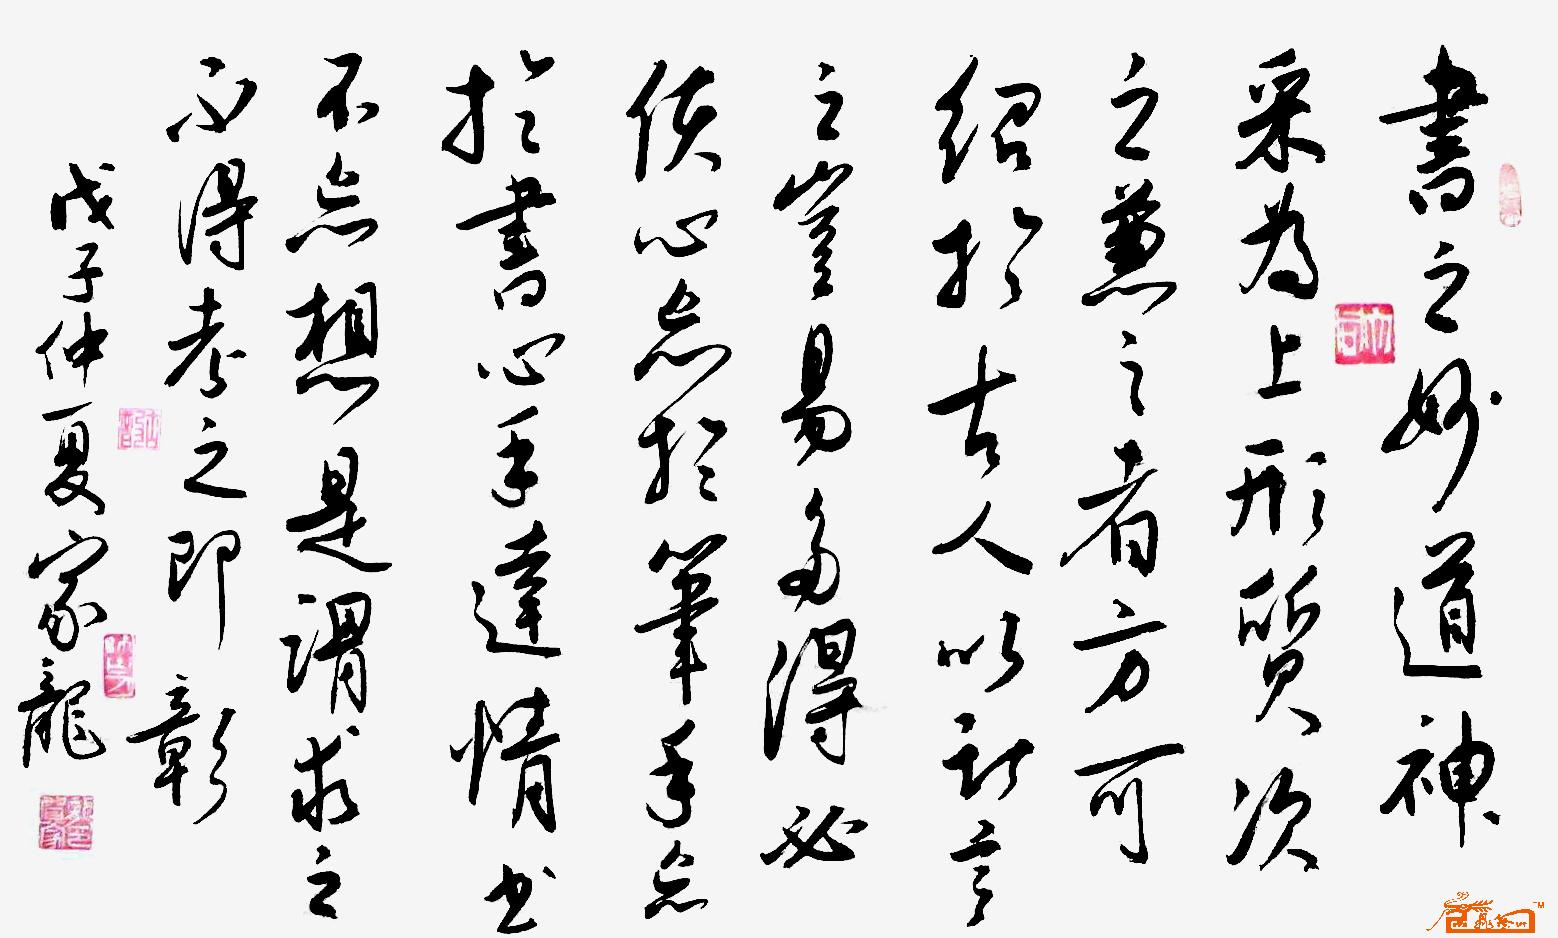 書之妙道神
采為上形質次
之兼之者方可
紹於古人以斯言
之豈易多得必
使心忘於筆手忘
於書心手達情书
不忘想是謂求之
不得考之即彰
戊子仲夏家龍